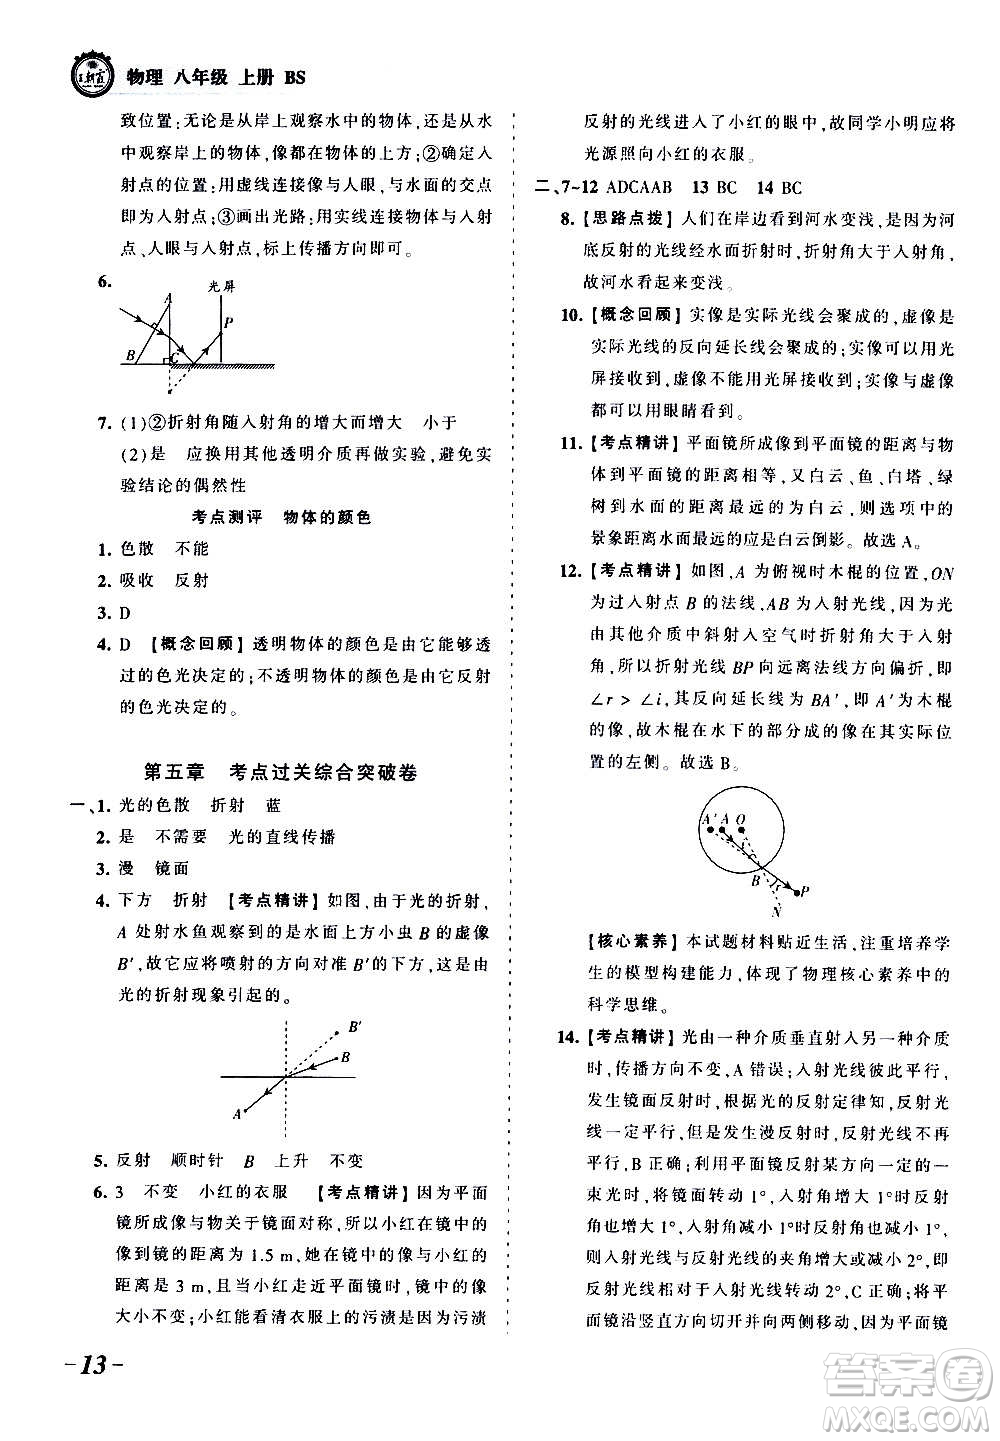 王朝霞
物理 八年级 上册 BS
致位置:无论是从岸上观察水中的物体,还是从水
中观察岸上的物体,像都在物体的上方;②确定入
射点的位置:用虚线连接像与人眼,与水面的交点
即为入射点;③画出光路:用实线连接物体与入射
点、人眼与入射点,标上传播方向即可。
6.
光屏
A
P
B
C
7. (1)②折射角随入射角的增大而增大 小于
(2)是 应换用其他透明介质再做实验,避免实
验结论的偶然性
考点测评 物体的颜色
1. 色散 不能
2. 吸收 反射
3. D
4. D 【概念回顾】透明物体的颜色是由它能够透
过的色光决定的;不透明物体的颜色是由它反射
的色光决定的。
第五章 考点过关综合突破卷
一、1. 光的色散 折射 蓝
2. 是 不需要 光的直线传播
3. 漫 镜面
4. 下方 折射 【考点精讲】如图,由于光的折射,
A 处射水鱼观察到的是水面上方小虫 B 的虚像
B′,故它应将喷射的方向对准 B′的下方,这是由
光的折射现象引起的。
B′
B
A
5. 反射 顺时针 B 上升 不变
6. 3 不变 小红的衣服 【考点精讲】因为平面
镜所成像与物关于镜面对称,所以小红在镜中的
像到镜的距离为 1.5 m,她在镜中的像与她的
距离为 3 m,且当小红走近平面镜时,镜中的像
大小不变;小红能看清衣服上的污渍是因为污渍
反射的光线进入了小红的眼中,故同学小明应将
光源照向小红的衣服。
二、7~12 ADCAAB 13 BC 14 BC
8. 【思路点拨】人们在岸边看到河水变浅,是因为河
底反射的光线经水面折射时,折射角大于入射角,
故河水看起来变浅。
10. 【概念回顾】实像是实际光线会聚成的,虚像是
实际光线的反向延长线会聚成的;实像可以用光
屏接收到,虚像不能用光屏接收到;实像与虚像
都可以用眼睛看到。
11. 【考点精讲】平面镜所成像到平面镜的距离与物
体到平面镜的距离相等,又白云、鱼、白塔、绿
树到水面的距离最远的为白云,所以选项中的
景象距离水面最远的应是白云倒影。故选 A。
12. 【考点精讲】如图,A 为俯视时木棍的位置,ON
为过入射点 B 的法线,AB 为入射光线,因为光
由其他介质中斜射入空气时折射角大于入射
角,所以折射光线 BP 向远离法线方向偏折,即
∠r > ∠i,其反向延长线为 BA′,即 A′为木棍
的像,故木棍在水下的部分成的像在其实际位置
的左侧。故选 B。
A′ A O
i
B
r
P
N
【核心素养】本试题材料贴近生活,注重培养学
生的模型构建能力,体现了物理核心素养中的
科学思维。
14. 【考点精讲】光由一种介质垂直射入另一种介质
时,传播方向不变,A 错误;入射光线彼此平行,
发生镜面反射时,根据光的反射定律知,反射光
线一定平行,当发生漫反射时,反射光线不再
平行,B 正确;利用平面镜反射某方向一定的一
束光时,若镜面转动 1°,入射角增大 1°,反射角
也增大 1°,入射角减小 1°,反射角也减小 1°,
则入射光线与反射光线的夹角增大或减小 2°,即
反射光线相对于入射光线转动 2°,C 正确;将平
面镜沿竖直方向切开并向两侧移动,因为平面镜
-13-
答案圈
MXQE.COM